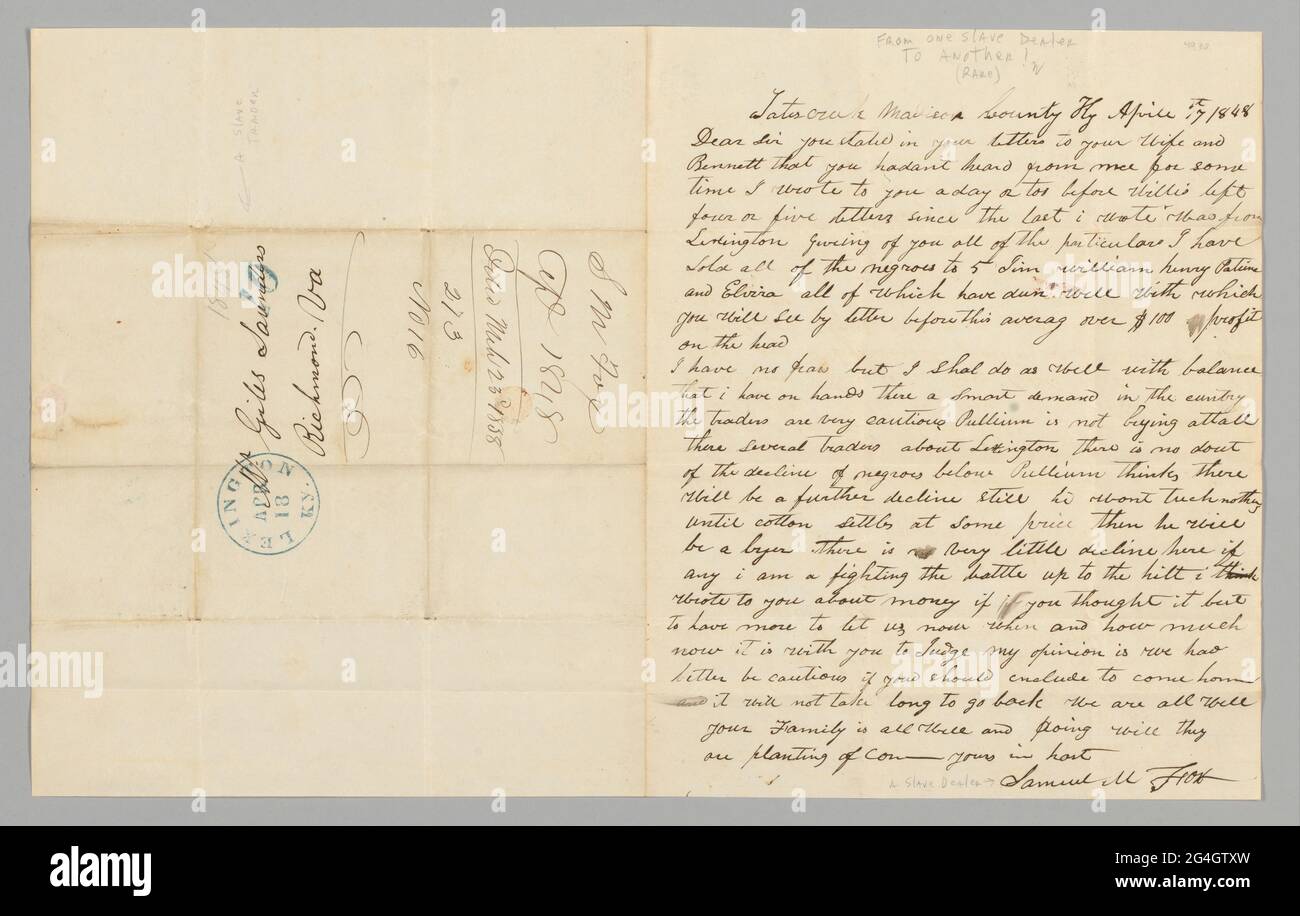 FROM ONE SLAVE DEALER
TO ANOTHER!
(RARE)
Tates Creek Madison County Ky Aprile 17th 1848
Dear Sir you stated in your letters to your Wife and
Bennett that you hadant heard from mee for some
time I wrote to you a day or too before Willis left
four or five letters since the last i wrote was from
Lexington giveing of you all of the particulars I have
Sold all of the negroes to 5 Jim william henry Patine
and Elvira all of which have dun well with which
you will see by letter before this averag over $100 profit
on the head
I have no fear but I Shal do as well with balance
that i have on hands there a smart demand in the cuntry
the traders are very cautious Pullium is not bying attall
there several traders about Lexington there is no dout
of the decline of negroes below Pullium thinks there
will be a further decline still he wont tuch nothing
until cotton settles at some price then he will
be a byer there is very little decline here if
any i am a fighting the battle up to the hilt i think
wrote to you about money if you thought it best
to have more to let us now when and how much
now it is with you to Judge my opinion is we had
better be cautious if you should conclude to come hom
and it will not take long to go back we are all well
your Family is all well and doing will they
are planting of corn yours in hast
A SLAVE DEALER → Samuel M Fox
← A SLAVE
TRADER
1848
10
Mr Giles Saunders
Richmond. Va
LEXINGTON KY.
APR
18
S M Fox
Apl 1848
213
No 16
alamy
Image ID: 2G4GTXW
www.alamy.com